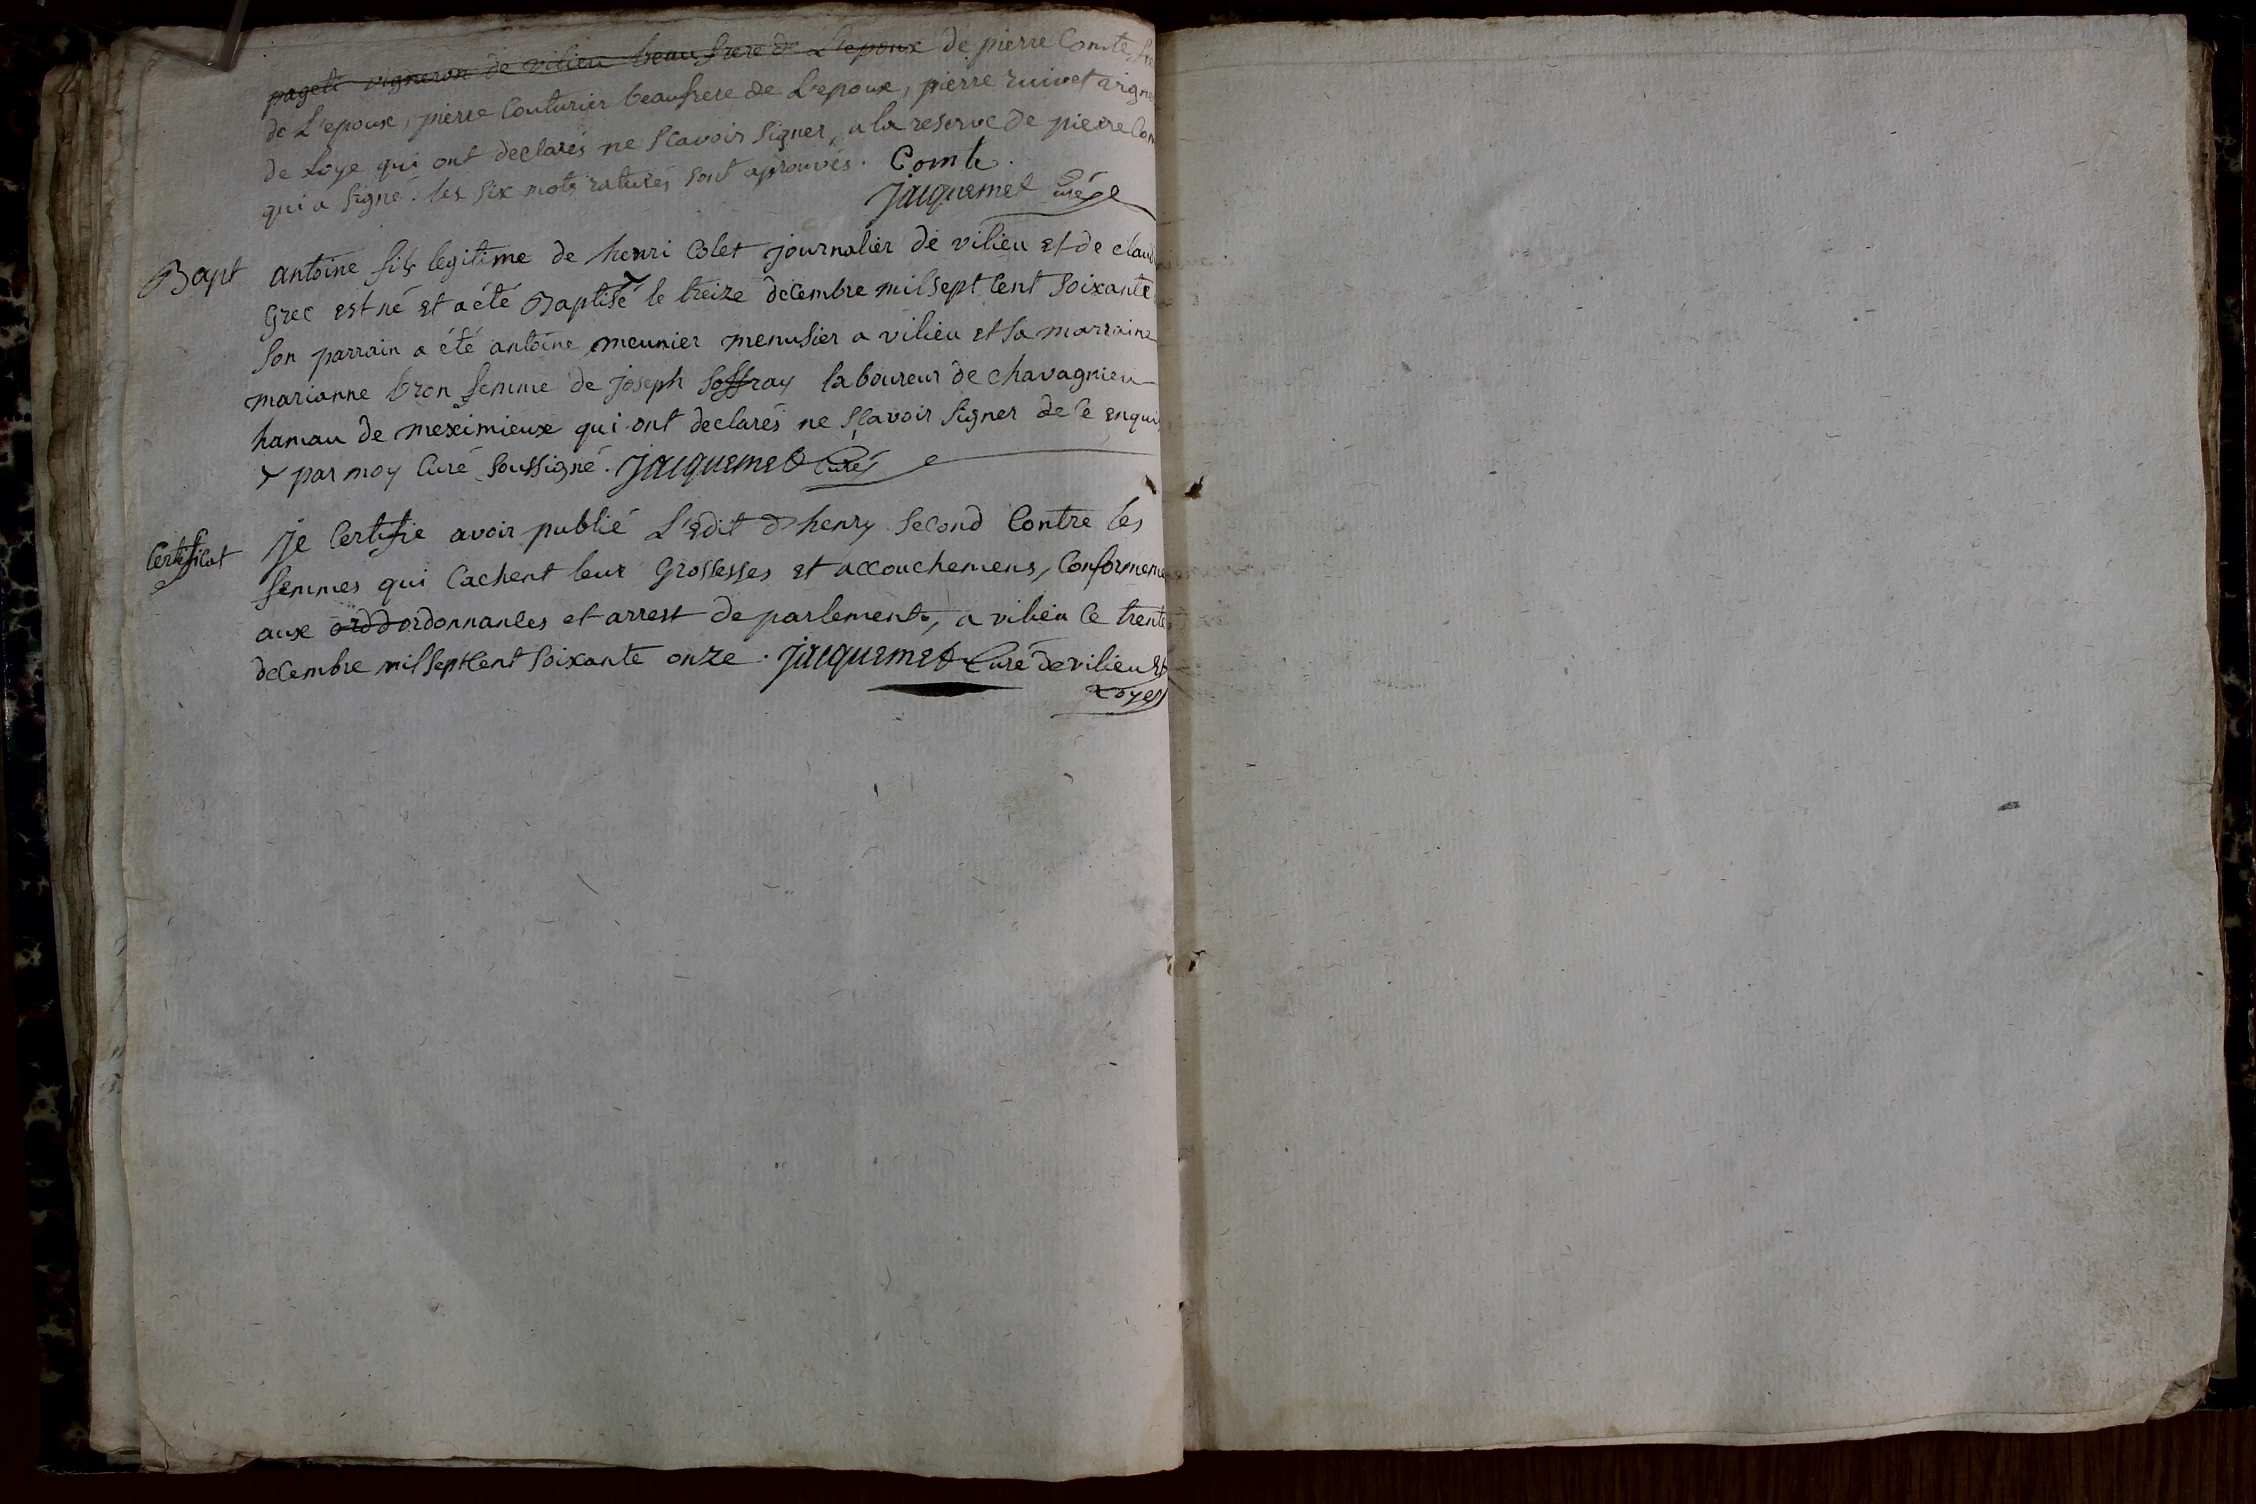 pageti vigneron de vilieu beau frere de L'epoux de pierre Comte
de L'epoux, pierre Couturier beaufrere de L'epoux, pierre ruivet vigne
de Loye qui ont declarés ne scavoir signer, a la reserve de pierre Com
qui a signé. les six mots raturés sont aprouvés. Comte.
Jacquemet Curé
Bapt antoine fils legitime de henri Colet journalier de vilieu et de claud
Grec est né et a été Baptisé le treize decembre mil sept cent soixante
son parrain a été antoine meunier menusier a vilieu et sa marraine
marianne bron femme de joseph soffray laboureur de chavagnieu
hamau de meximieux qui ont declarés ne scavoir signer de ce enquis
par moy Curé soussigné. Jacquemet Curé
Certificat je Certifie avoir publié L'edit d'henry second Contre les
femmes qui Cachent leur Grossesses et accouchemens, Conformeme
aux ordd ordonnances et arrest de parlements, a vilieu ce trente
decembre mil sept Cent soixante onze. Jacquemet Curé de vilieu et
Loyes